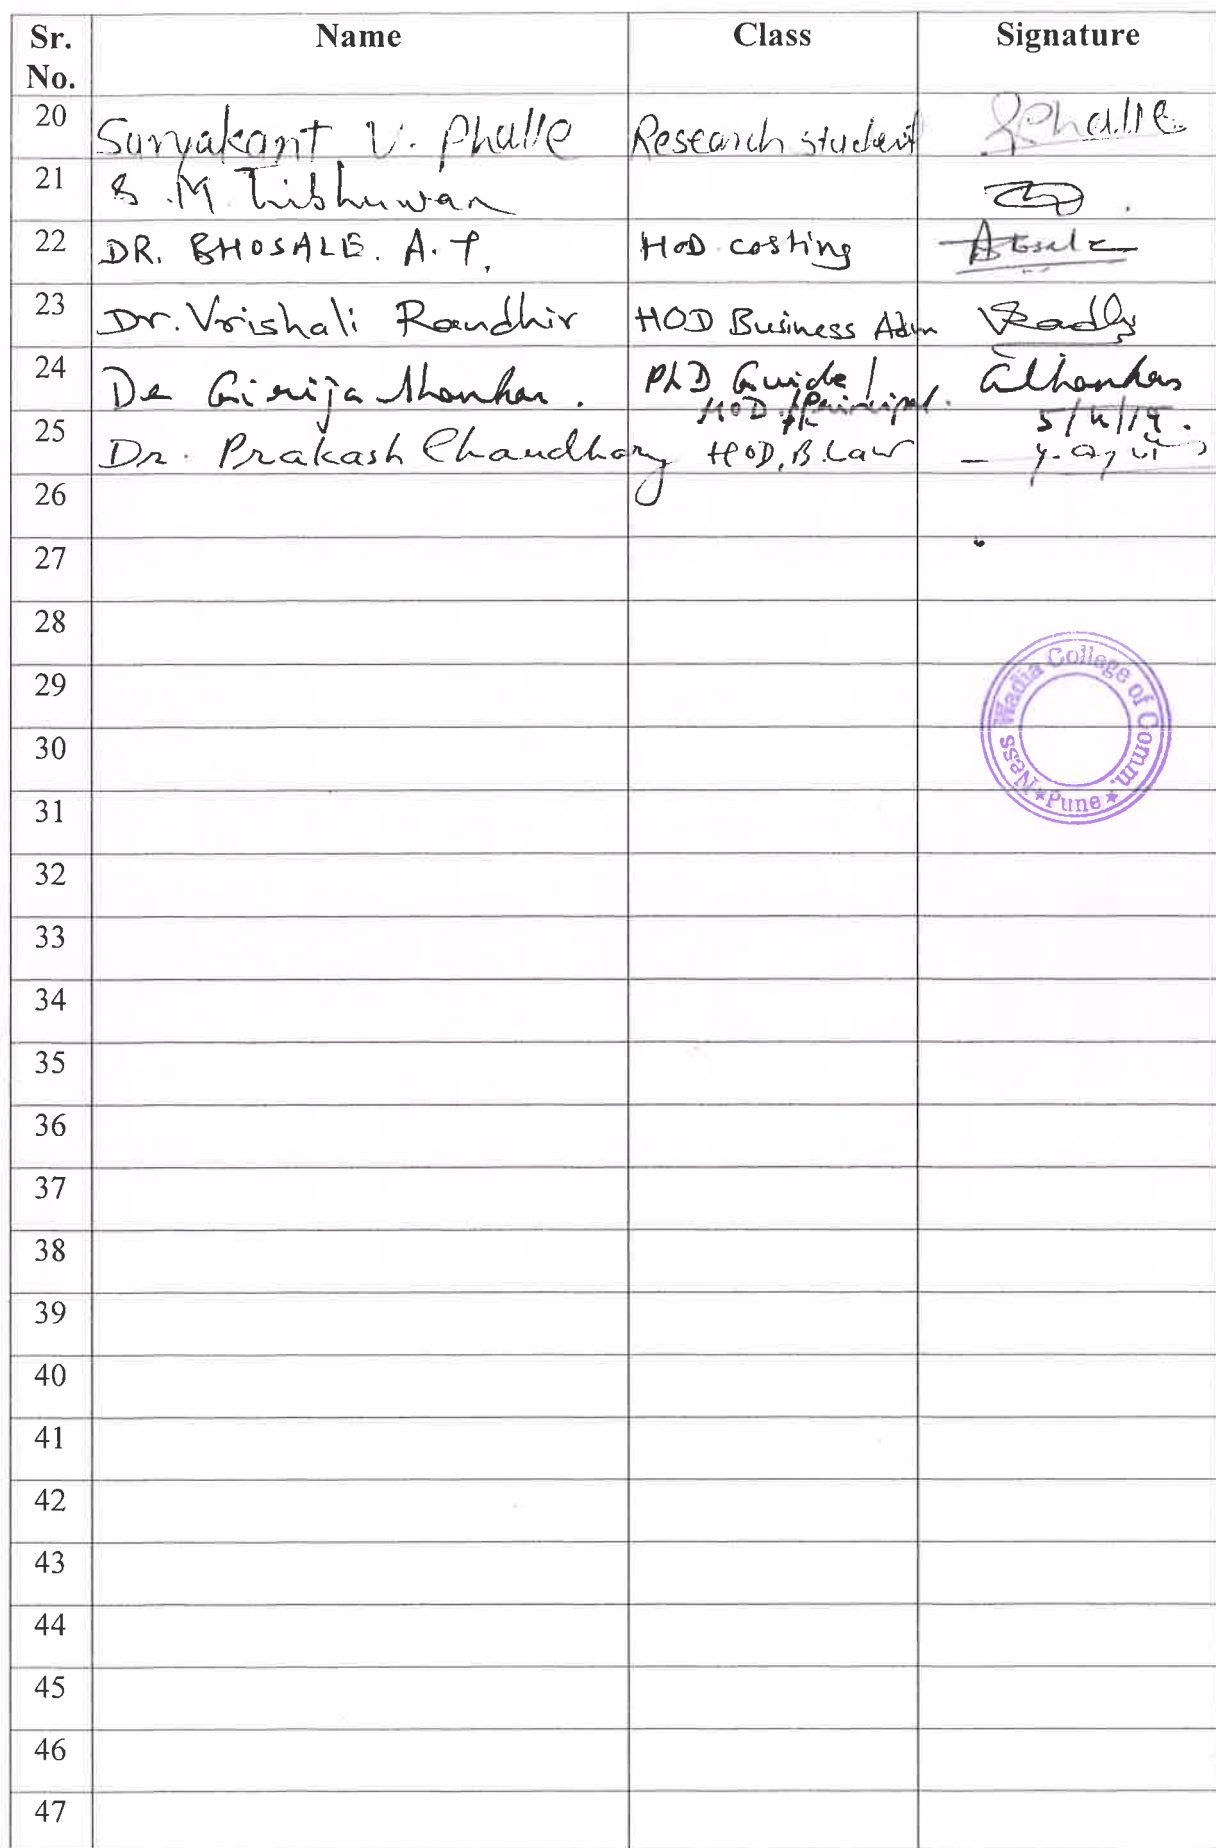 Sr. No. Name Class Signature
20 Suryakant V. Phalle Research student SPhalle
21 S.M Tribhuwan
22 DR. BHOSALE. A.T. HoD costing ABosale
23 Dr. Vrishali Randhir HOD Business Adm
24 Dr Girija Shankar. PhD Guide /
HOD / Principal. 5/4/19.
25 Dr. Prakash Chaudhary HOD, B.Law
26
27
28
29
30
31
32
33
34
35
36
37
38
39
40
41
42
43
44
45
46
47
Ness Wadia College of Comm. Pune